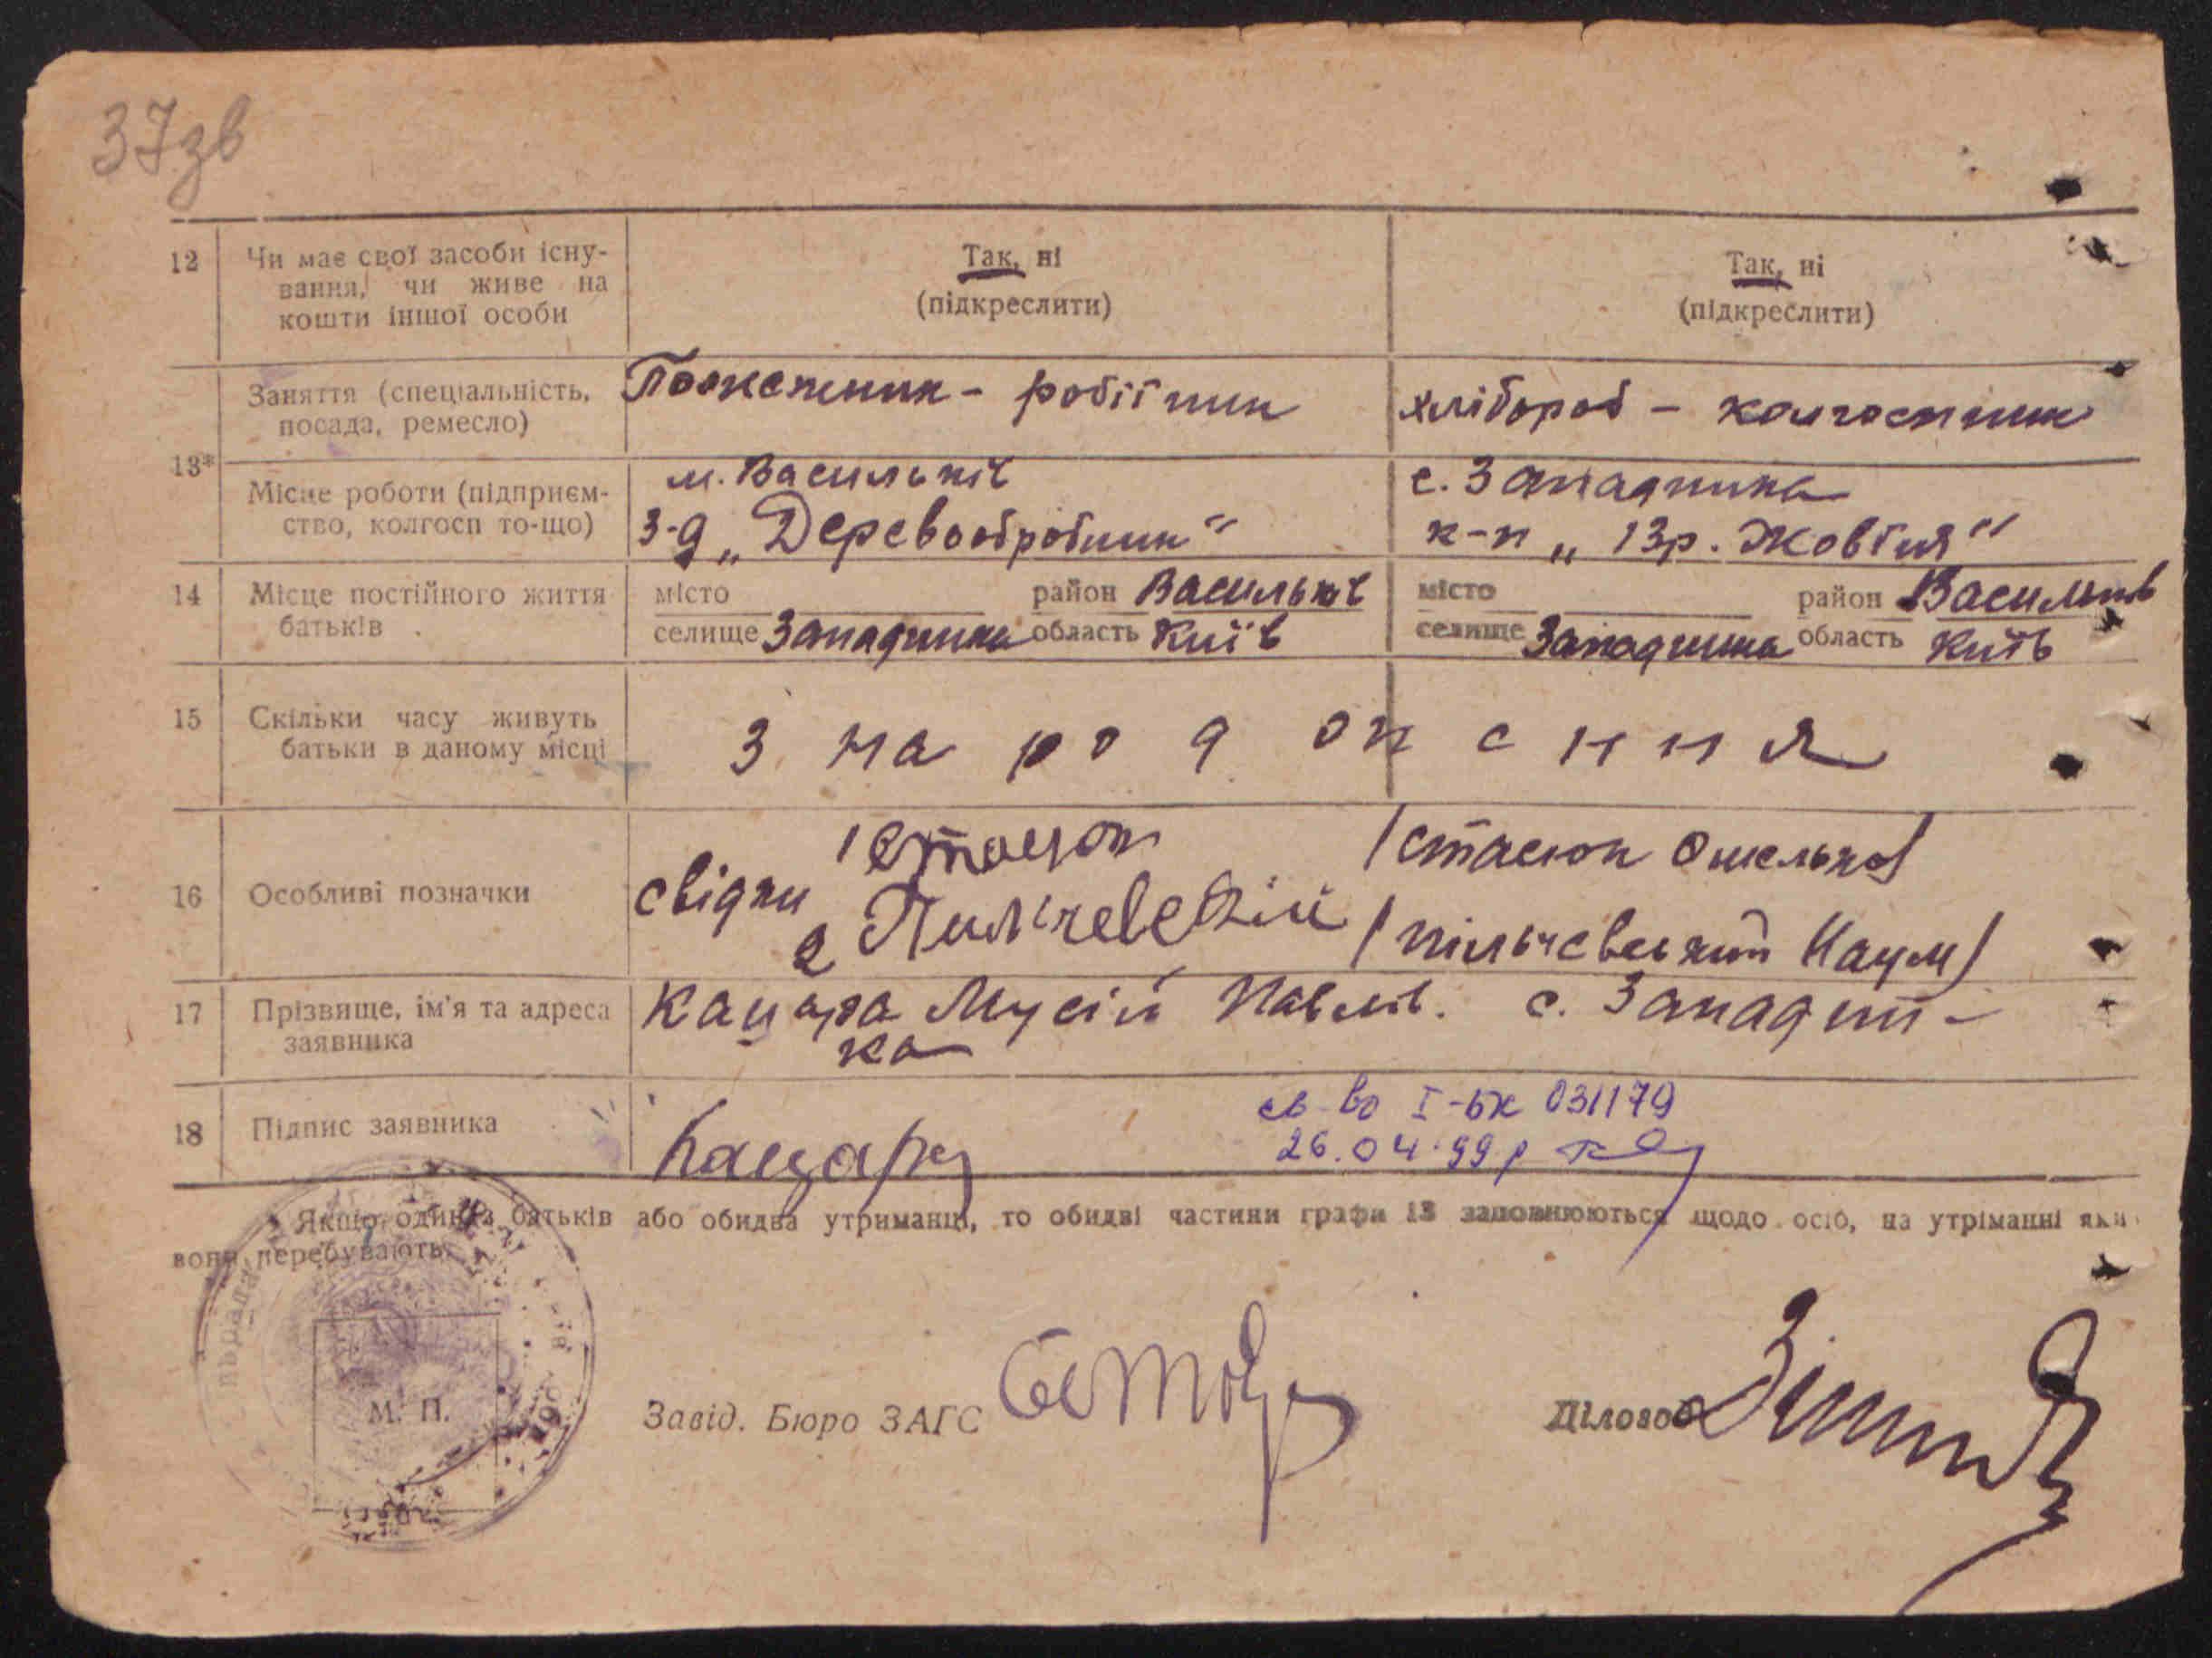 37зв
12 Чи має свої засоби існу-
вання, чи живе на
кошти іншої особи
Так, ні
(підкреслити)
Так, ні
(підкреслити)
13*
Заняття (спеціальність,
посада, ремесло)
Пожежник - робітник
хлібороб - колгоспник
Місце роботи (підприєм-
ство, колгосп то-що)
м. Васильків
З-д „Деревообробник“
с. Западинка
к-п „13р. Жовтня“
14 Місце постійного життя
батьків
місто район Васильків
селище Западинка область Київ
місто район Васильків
селище Западинка область Київ
15 Скільки часу живуть
батьки в даному місці
З народження
16 Особливі позначки
свідки 1 Стасюк /Стасюк Омелько/
2 Пильчевский /Пільчевський Наум/
17 Прізвище, ім'я та адреса
заявника
Кацара Мусій Павлов. с. Западин-
ка
18 Підпис заявника
Кацара
св-во І-БК 031179
26.04.99р
Якщо один з батьків або обидва утриманці, то обидві частини графи 13 заповнюються щодо осіб, на утріманні яки
вони перебувають.
М. П.
Завід. Бюро ЗАГС
Діловод